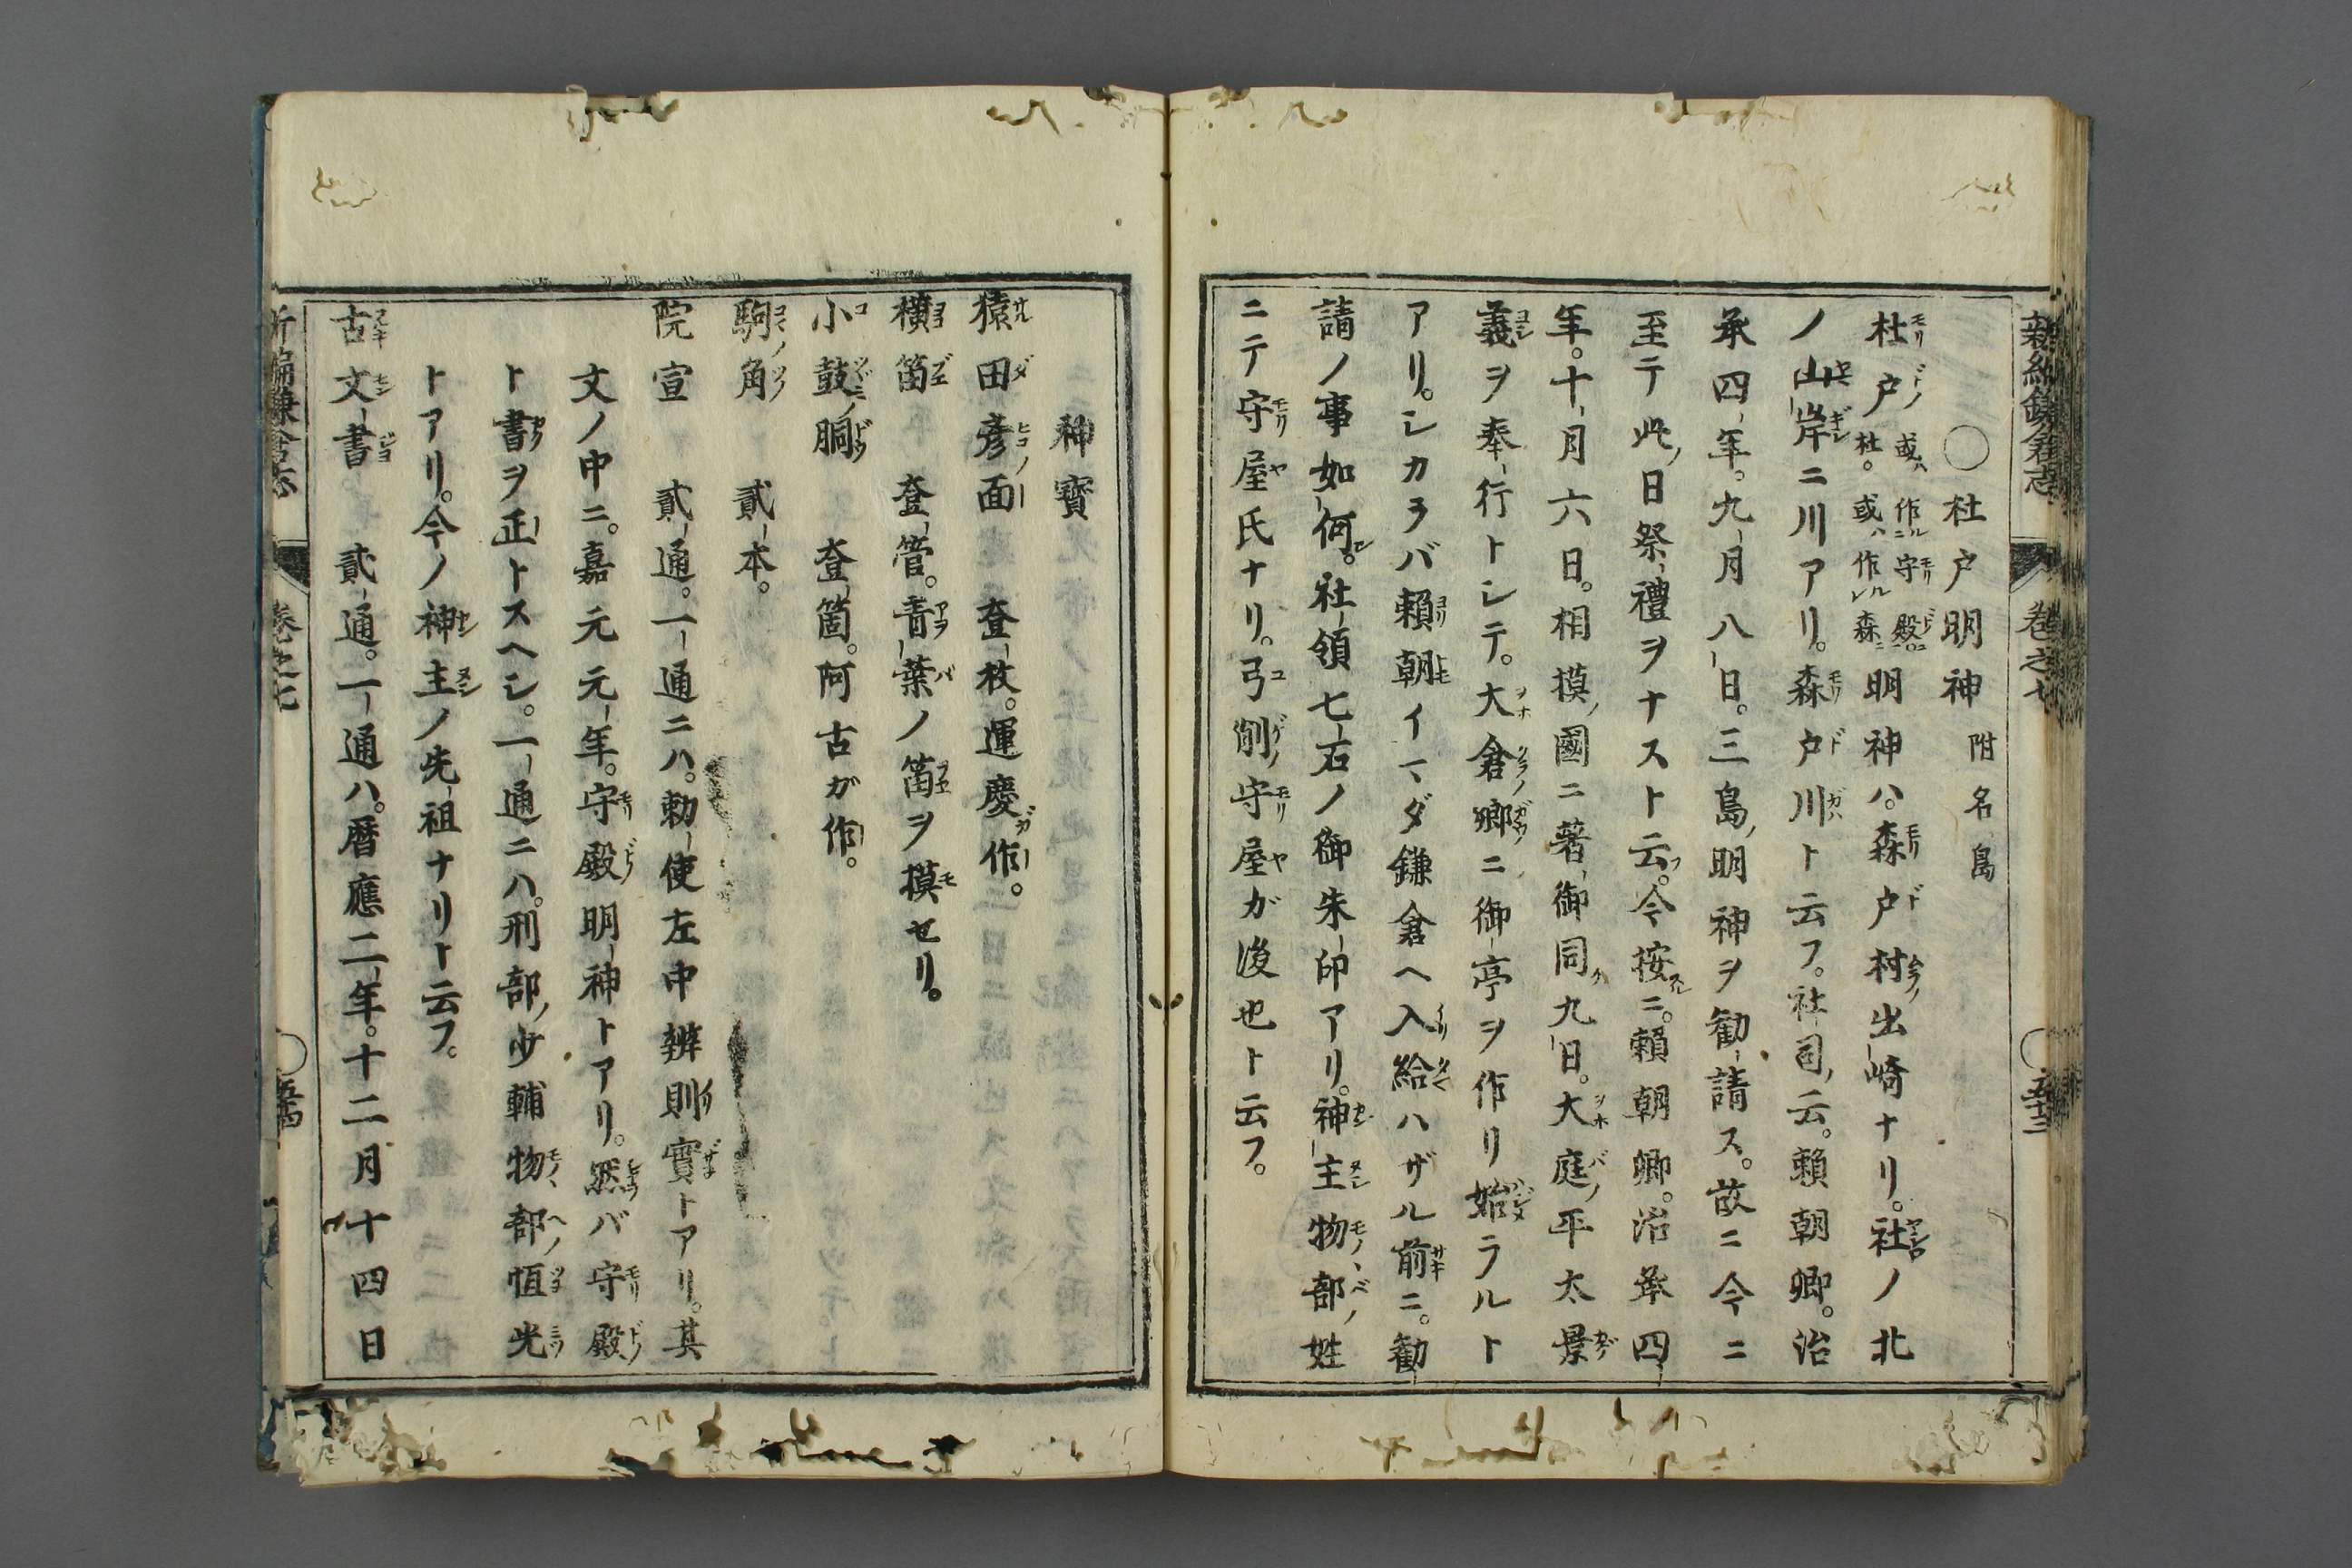 新編鎌倉志 卷之七 五十三
○杜戸明神 附名島
杜戸 或ハ作ル守殿ニ。或ハ作ル森ニ杜。 明神ハ。森戸村出崎ナリ。社ノ北
ノ山岸ニ川アリ。森戸川ト云フ。社司云。賴朝卿。治
承四年。九月八日。三島明神ヲ勸請ス。故ニ今ニ
至テ此日祭禮ヲナスト云。今按ニ。賴朝卿。治承四
年。十月六日。相摸國ニ著御同九日。大庭平太景
義ヲ奉行トシテ。大倉郷ニ御亭ヲ作リ始ラルト
アリ。シカラバ賴朝イマダ鎌倉ヘ入給ハザル前ニ。勸
請ノ事如何。社領七石ノ御朱印アリ。神主物部姓
ニテ守屋氏ナリ。弓削守屋ガ後也ト云フ。
神寶
猿田彦面 壹枚。運慶作。
横笛 壹管。青葉ノ笛ヲ摸セリ。
小鼓胴 壹箇。阿古ガ作。
駒角 貳本。
院宣 貳通。一通ニハ。勅使左中辨則實トアリ。其
文ノ中ニ。嘉元元年。守殿明神トアリ。然バ守殿
ト書ヲ正トスヘシ。一通ニハ。刑部少輔物部恒光
トアリ。今ノ神主ノ先祖ナリト云フ。
古文書。 貳通。一通ハ。暦應二年。十二月十四日
新編鎌倉志 卷之七 五十四